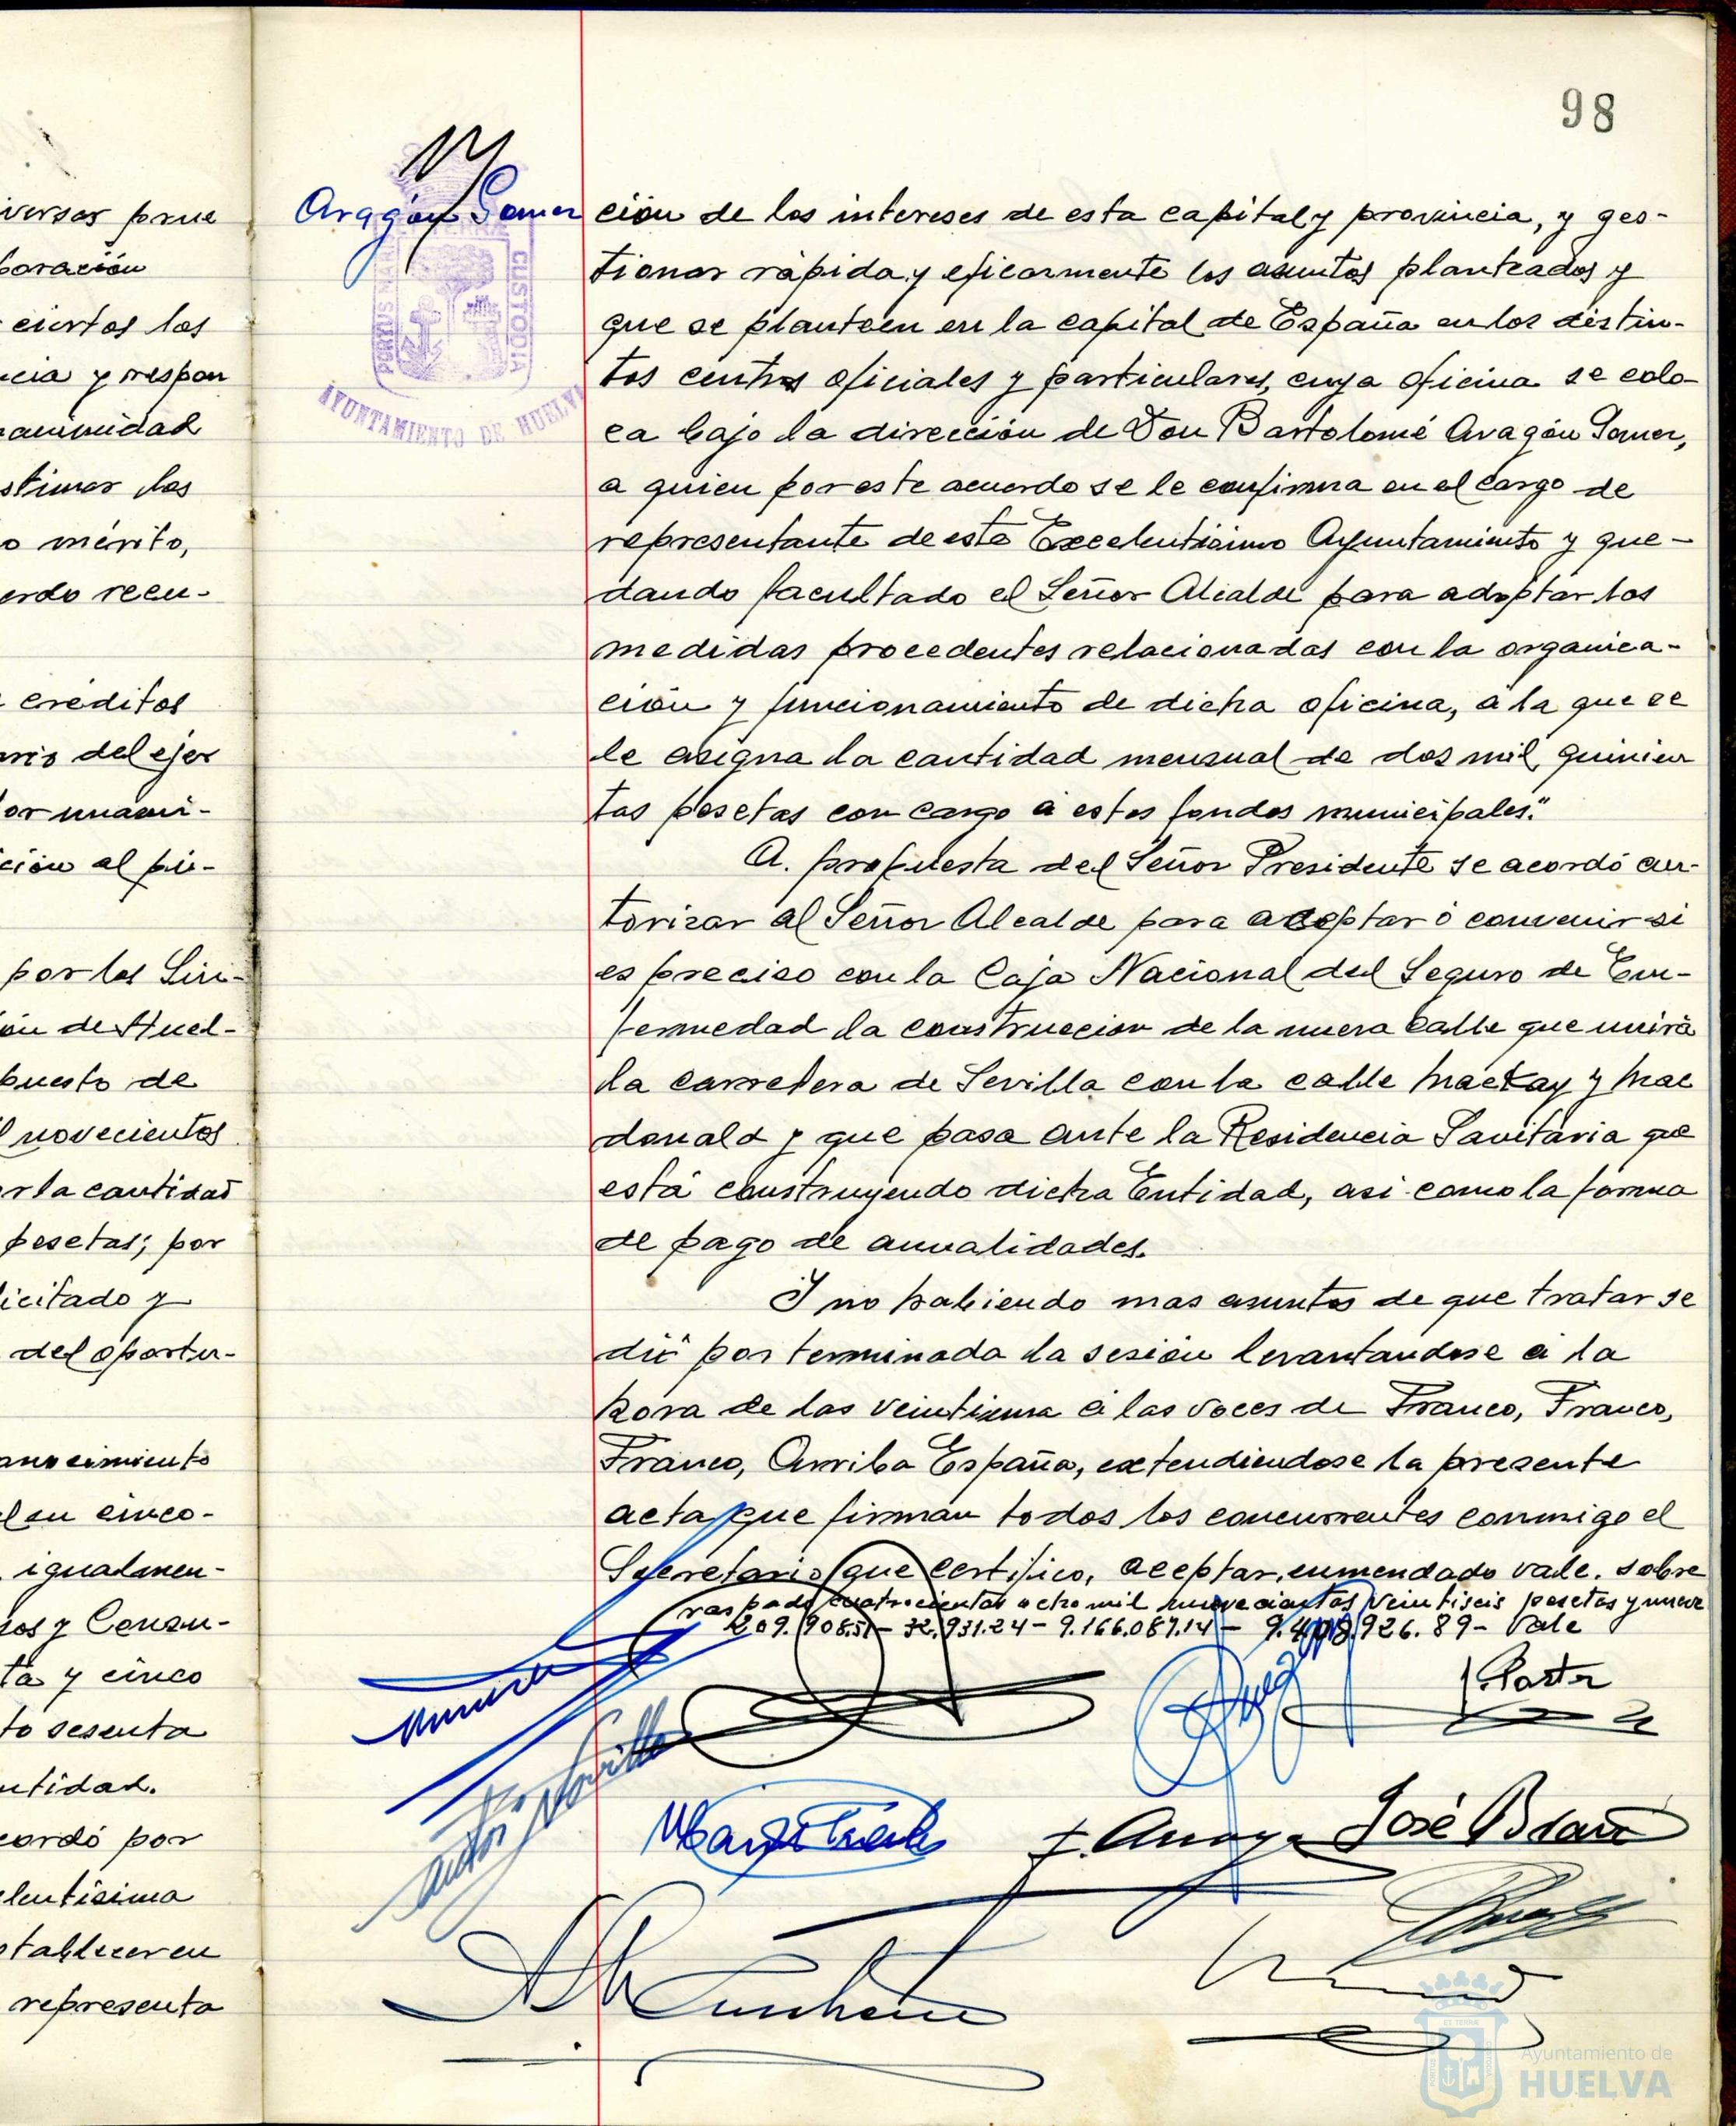 98
versas prue
boración
ciertos los
ncia y respon
animidad
stimar las
o mérito,
erdo recu-
creditos
del ejer
or unani-
ción al pú-
por los Sin-
de Huel-
puesto de
novecientos
r la cantidad
pesetas; por
licitado y
del oportu-
conocimiento
cinco-
igualmen-
y Consu-
ta y cinco
to sesenta
ntidad.
cordó por
lentísima
stablecer en
representa
Aragón Gomer
PORTUS MARIS ET TERRA CUSTODIA
AYUNTAMIENTO DE HUELVA
ción de los intereses de esta capital y provincia, y ges-
tionar rápida y eficazmente los asuntos planteados y
que se planteen en la capital de España en los distin-
tos centros oficiales y particulares, cuya oficina se colo-
ca bajo la dirección de Don Bartolomé Aragón Gomer,
a quien por este acuerdo se le confirma en el cargo de
representante de este Excelentísimo Ayuntamiento y que-
dando facultado el Señor Alcalde para adoptar las
medidas procedentes relacionadas con la organiza-
ción y funcionamiento de dicha oficina, a la que se
le asigna la cantidad mensual de dos mil quinien
tas pesetas con cargo á estos fondos municipales."
A propuesta del Señor Presidente se acordó au-
torizar al Señor Alcalde para aceptar ó convenir si
es preciso con la Caja Nacional del Seguro de En-
fermedad la construccion de la nueva calle que unirá
la carretera de Sevilla con la calle Mackay y Mac
donald y que pasa ante la Residencia Sanitaria que
está construyendo dicha Entidad, asi como la forma
de pago de anualidades.
Y no habiendo mas asuntos de que tratar se
dió por terminada la sesión levantandose á la
hora de las veintiuna á las voces de Franco, Franco,
Franco, Arriba España, extendiendose la presente
acta que firman todos los concurrentes conmigo el
Secretario que certifico, aceptar, enmendado vale. sobre
raspado cuatrocientas ocho mil nuevecientas veintiseis pesetas y nueve
209.908.51 - 32.931.24 - 9.166.087.14 - 9.408.926.89 - Vale
José Blanc
Ayuntamiento de
HUELVA